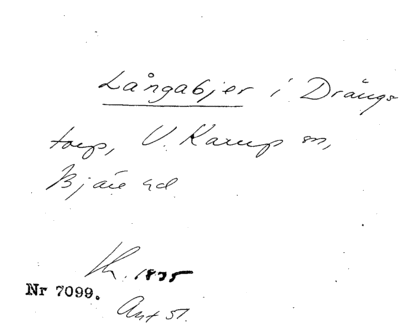 Långabjer i Drängs-
torp, V. Karup sn,
Bjäre hd
Th. 1835
Nr 7099.
Ant 51.